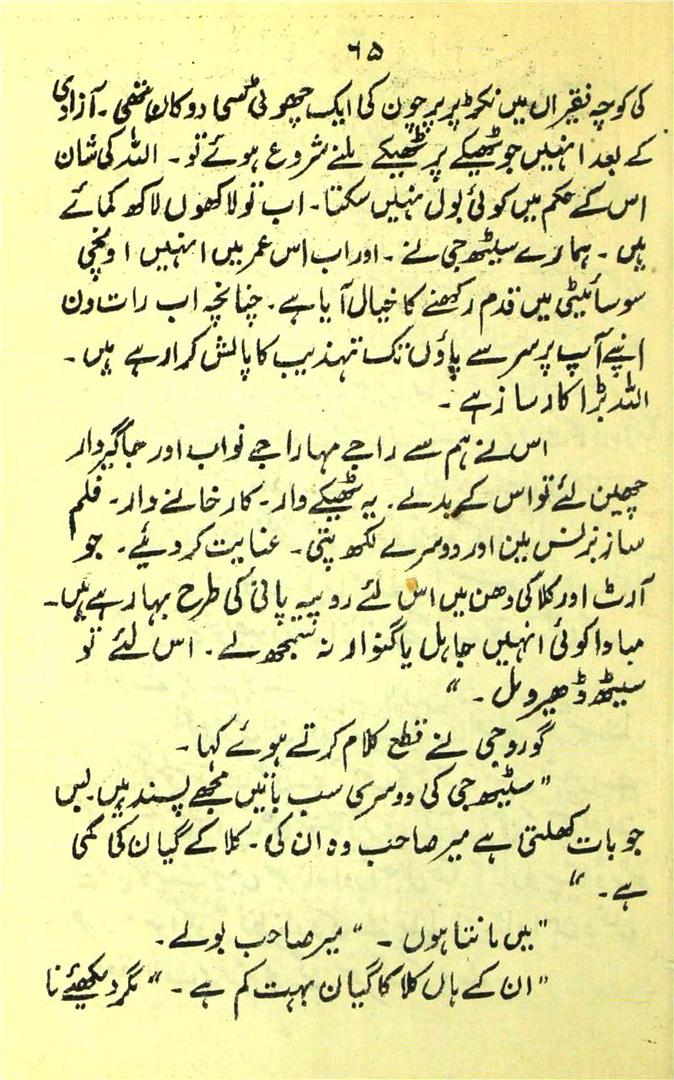 ۶۵
کی کوچہ نقیراں میں نکڑ پر پرچون کی ایک چھوٹی سی دوکان تھی۔ آزادی
کے بعد انہیں جو ٹھیکے پر ٹھیکے ملنے شروع ہوئے تو۔ اللہ کی شان
اس کے حکم میں کوئی بول نہیں سکتا۔ اب تو لاکھوں لاکھ کمائے
ہیں۔ ہمارے سیٹھ جی نے۔ اور اب اس عمر میں انہیں اونچی
سوسائیٹی میں قدم رکھنے کا خیال آیا ہے۔ چنانچہ اب رات دن
اپنے آپ پر سر سے پاؤں تک تہذیب کا پالش کرا رہے ہیں۔
اللہ بڑا کارساز ہے۔
اس نے ہم سے راجے مہاراجے نواب اور جاگیردار
چھین لئے تو اس کے بدلے۔ یہ ٹھیکے دار۔ کارخانے دار۔ فلم
ساز بزنس مین اور دوسرے لکھ پتی۔ عنایت کر دیئے۔ جو
آرٹ اور کلا کی دھن میں اس لئے روپیہ پانی کی طرح بہا رہے ہیں۔
مبادا کوئی انہیں جاہل یا گنوار نہ سمجھ لے۔ اس لئے تو
سیٹھ ڈھیرومل۔ “
گورو جی نے قطع کلام کرتے ہوئے کہا۔
”سیٹھ جی کی دوسری سب باتیں مجھے پسند ہیں بس
جو بات کھلتی ہے میر صاحب وہ ان کی۔ کلا کے گیان کی کمی
ہے۔ “
”میں مانتا ہوں۔ “ میر صاحب بولے۔
”ان کے ہاں کلا کا گیان بہت کم ہے۔ “ مگر دیکھئے نا